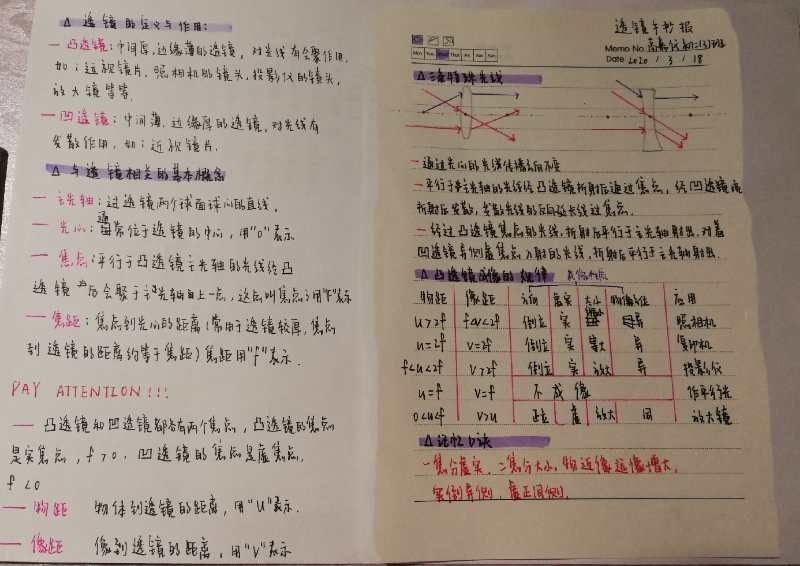 △ 透镜的定义与作用:
— 凸透镜:中间厚,边缘薄的透镜,对光线有会聚作用,
如:远视镜片,照相机的镜头,投影仪的镜头,
放大镜等等.
— 凹透镜:中间薄,边缘厚的透镜,对光线有
发散作用,如:近视镜片.
△ 与透镜相关的基本概念
— 主光轴:过透镜两个球面球心的直线.
— 光心:通常位于透镜的中心,用"o"表示
— 焦点:平行于凸透镜主光轴的光线经凸
透镜后会聚于主光轴上一点,这点叫焦点,用"F"表示
— 焦距:焦点到光心的距离(常用于透镜较厚,焦点
到透镜的距离约等于焦距)焦距用"f"表示.
PAY ATTENTION!!!
— 凸透镜和凹透镜都各有两个焦点,凸透镜的焦点
是实焦点,f>0.凹透镜的焦点是虚焦点,
f<0
— 物距 物体到透镜的距离,用"u"表示.
— 像距 像到透镜的距离,用"v"表示
透镜手抄报
Memo No.
Mon Tue Wed Thu Fri Sat Sun
Date 2020 / 3 / 18
△ 三条特殊光线
— 通过光心的光线传播方向不变
— 平行于主光轴的光线经凸透镜折射后通过焦点,经凹透镜
折射后发散,发散光线的反向延长线过焦点.
— 经过凸透镜焦点的光线,折射后平行于主光轴射出.对着
凹透镜异侧虚焦点入射的光线,折射后平行于主光轴射出.
△ 凸透镜成像的规律
物距 像距 方向 虚实 大小 物像位置 应用
u>2f f<v<2f 倒立 实 缩小 异 照相机
u=2f v=2f 倒立 实 等大 异 复印机
f<u<2f v>2f 倒立 实 放大 异 投影仪
u=f v=f 不成像 作平行光
0<u<f v>u 正立 虚 放大 同 放大镜
△ 记忆口诀
一焦分虚实,二焦分大小,物近像远像增大,
实倒异侧,虚正同侧.